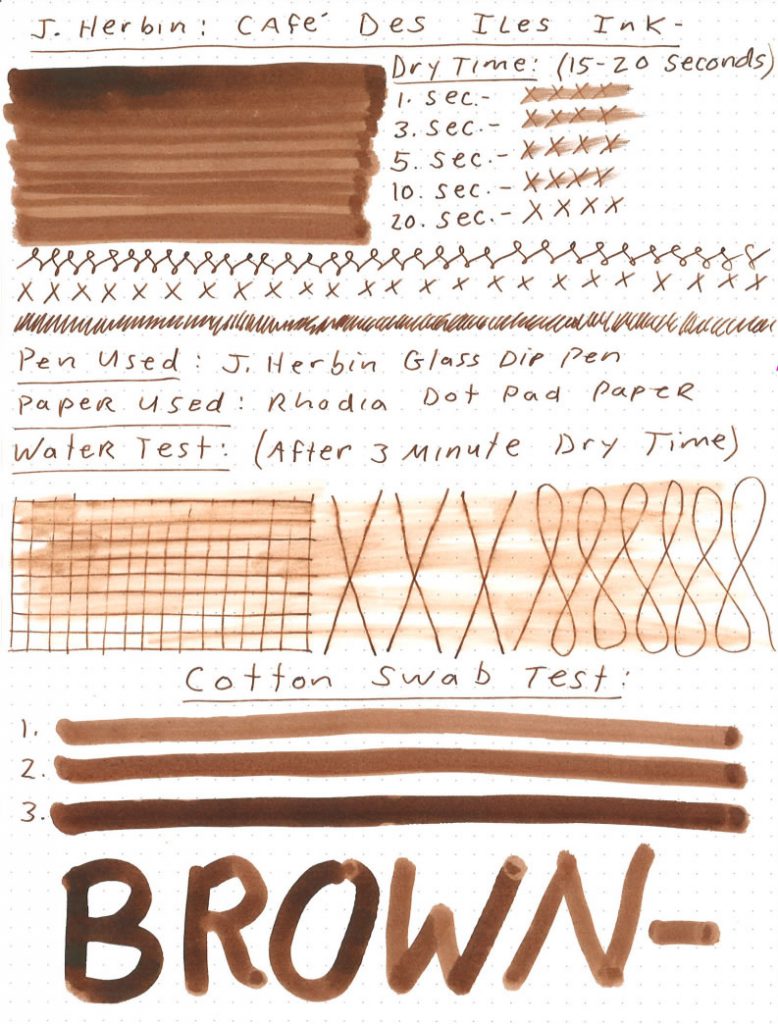 J. Herbin: Café Des Iles Ink-
Dry Time: (15-20 seconds)
1. sec.- X X X X
3. sec.- X X X X
5. sec.- X X X X
10. sec.- X X X X
20. sec.- X X X X
X X X X X X X X X X X X X X X X X X X X X X X X
Pen Used: J. Herbin Glass Dip Pen
Paper Used: Rhodia Dot Pad Paper
Water Test: (After 3 Minute Dry Time)
X X X
Cotton Swab Test:
1.
2.
3.
BROWN-